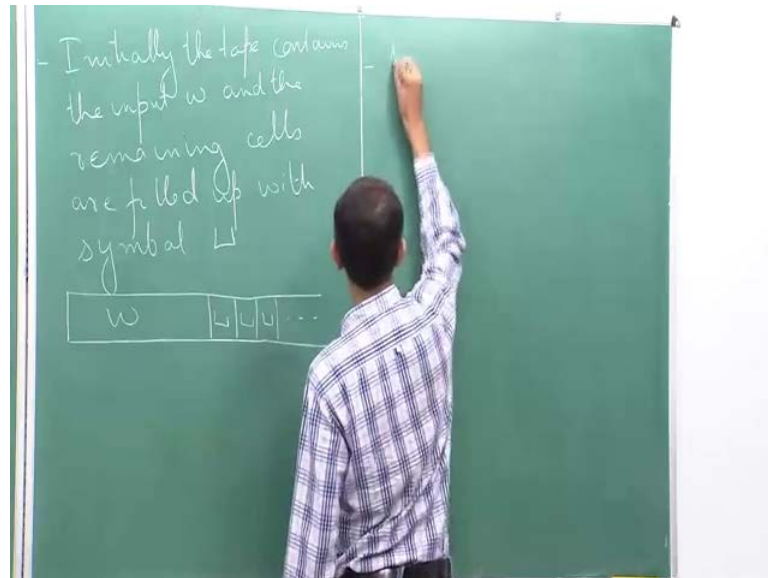 - Initially the tape contains
the input w and the
remaining cells
are filled up with
symbol ⊔
w ⊔ ⊔ ⊔ ...
-